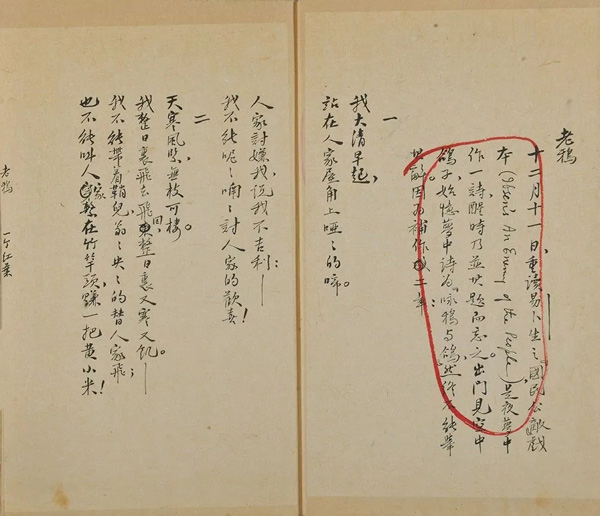 老鴉
十二月十一日,重讀易卜生之「國民公敵」戲
本(Ibsen's An Enemy of the People),是夜夢中
作一詩,醒時乃並其題而忘之。出門見空中
鴿子,始憶夢中詩為「咏鴉與鴿」,然終不能舉
其詞。因為補作成二章:
一
我大清早起,
站在人家屋角上啞々的啼。
人家討嫌我,說我不吉利:—
我不能呢々喃々討人家的歡喜!
二
天寒風緊,無枝可棲。
我整日裏飛去飛回,整日裏又寒又飢。—
我不能帶着鞘兒翁々央々的替人家飛;
也不能叫人家繫在竹竿頭,賺一把黃小米!
老鴉
一个紅葉